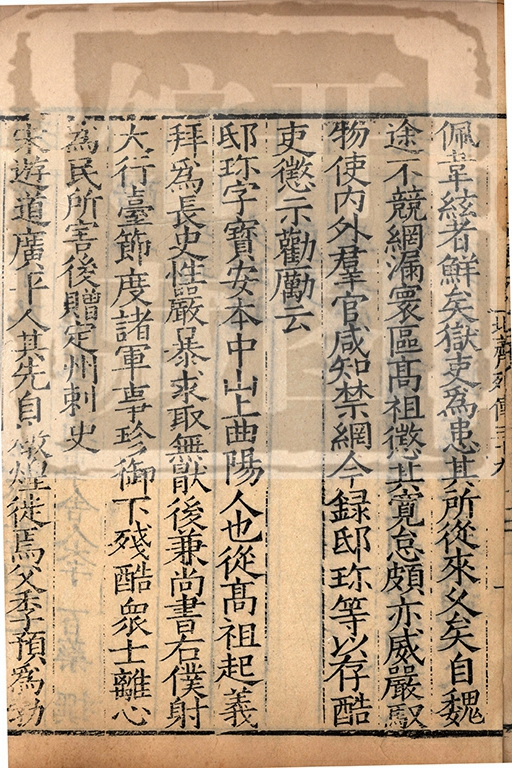 佩韋絃者鮮矣獄吏為患其所從來久矣自魏
途不競網漏寰區高祖懲其寬怠頗亦威嚴馭
物使內外羣官咸知禁網今録邸珎等以存酷
吏懲示勸勵云
邸珎字寶安本中山上曲陽人也從髙祖起義
拜爲長史性嚴暴求取無猒後兼尚書右僕射
大行臺節度諸軍事珍御下殘酷衆士離心
為民所害後贈定州刺史
宋遊道廣平人其先自燉煌徙焉父季預為勃